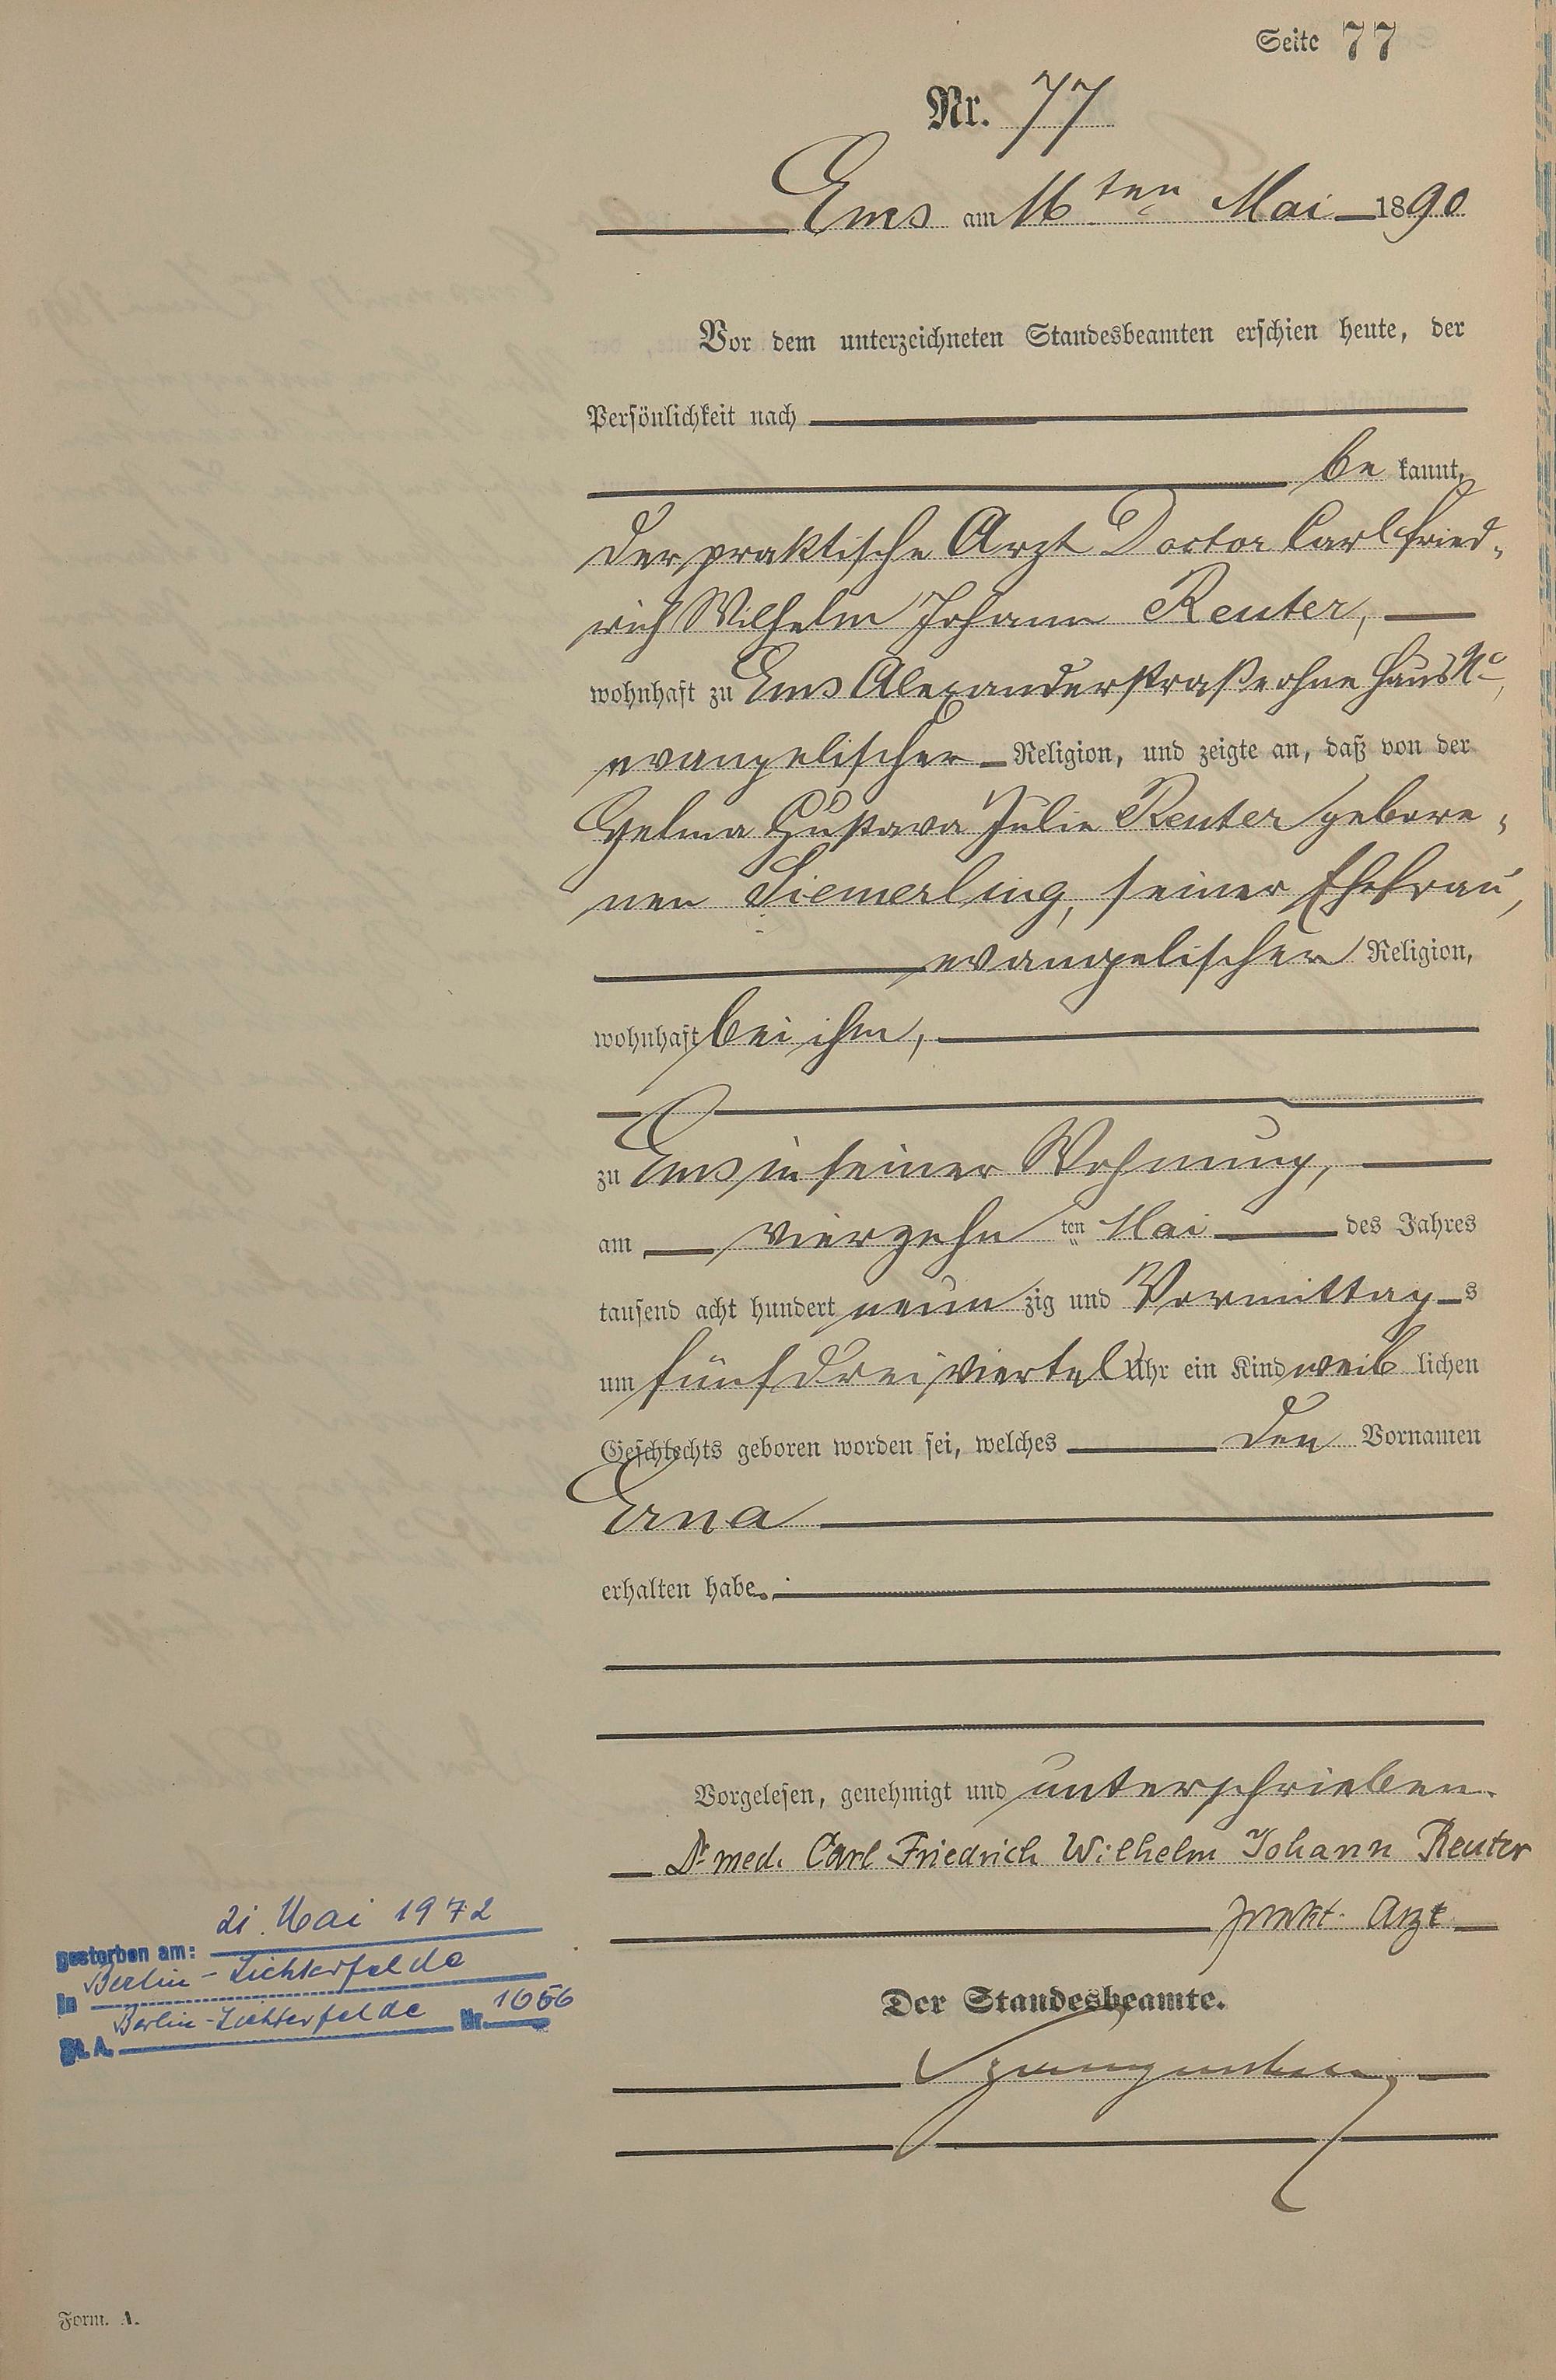 Seite 77
Nr. 77
Ems am 16ten Mai 1890
Vor dem unterzeichneten Standesbeamten erschien heute, der
Persönlichkeit nach
be kannt,
der praktische Arzt Doctor Carl Fried-
rich Wilhelm Johann Reuter,
wohnhaft zu Ems Alexanderstraße ohne Haus No,
evangelischer Religion, und zeigte an, daß von der
Helma Gustava Julie Reuter gebore-
nen Siemerling, seiner Ehefrau,
evangelischer Religion,
wohnhaft bei ihm,
zu Ems in seiner Wohnung,
am vierzehn ten Mai des Jahres
tausend acht hundert neun zig und Vormittag s
um fünf dreiviertel Uhr ein Kind weib lichen
Geschlechts geboren worden sei, welches den Vornamen
Erna
erhalten habe.
Vorgelesen, genehmigt und unterschrieben.
Dr med. Carl Friedrich Wilhelm Johann Reuter
prakt. Arzt
Der Standesbeamte.
gestorben am: 21. Mai 1972
in Berlin-Lichterfelde
St. A. Berlin-Lichterfelde Nr. 1056
Form. A.